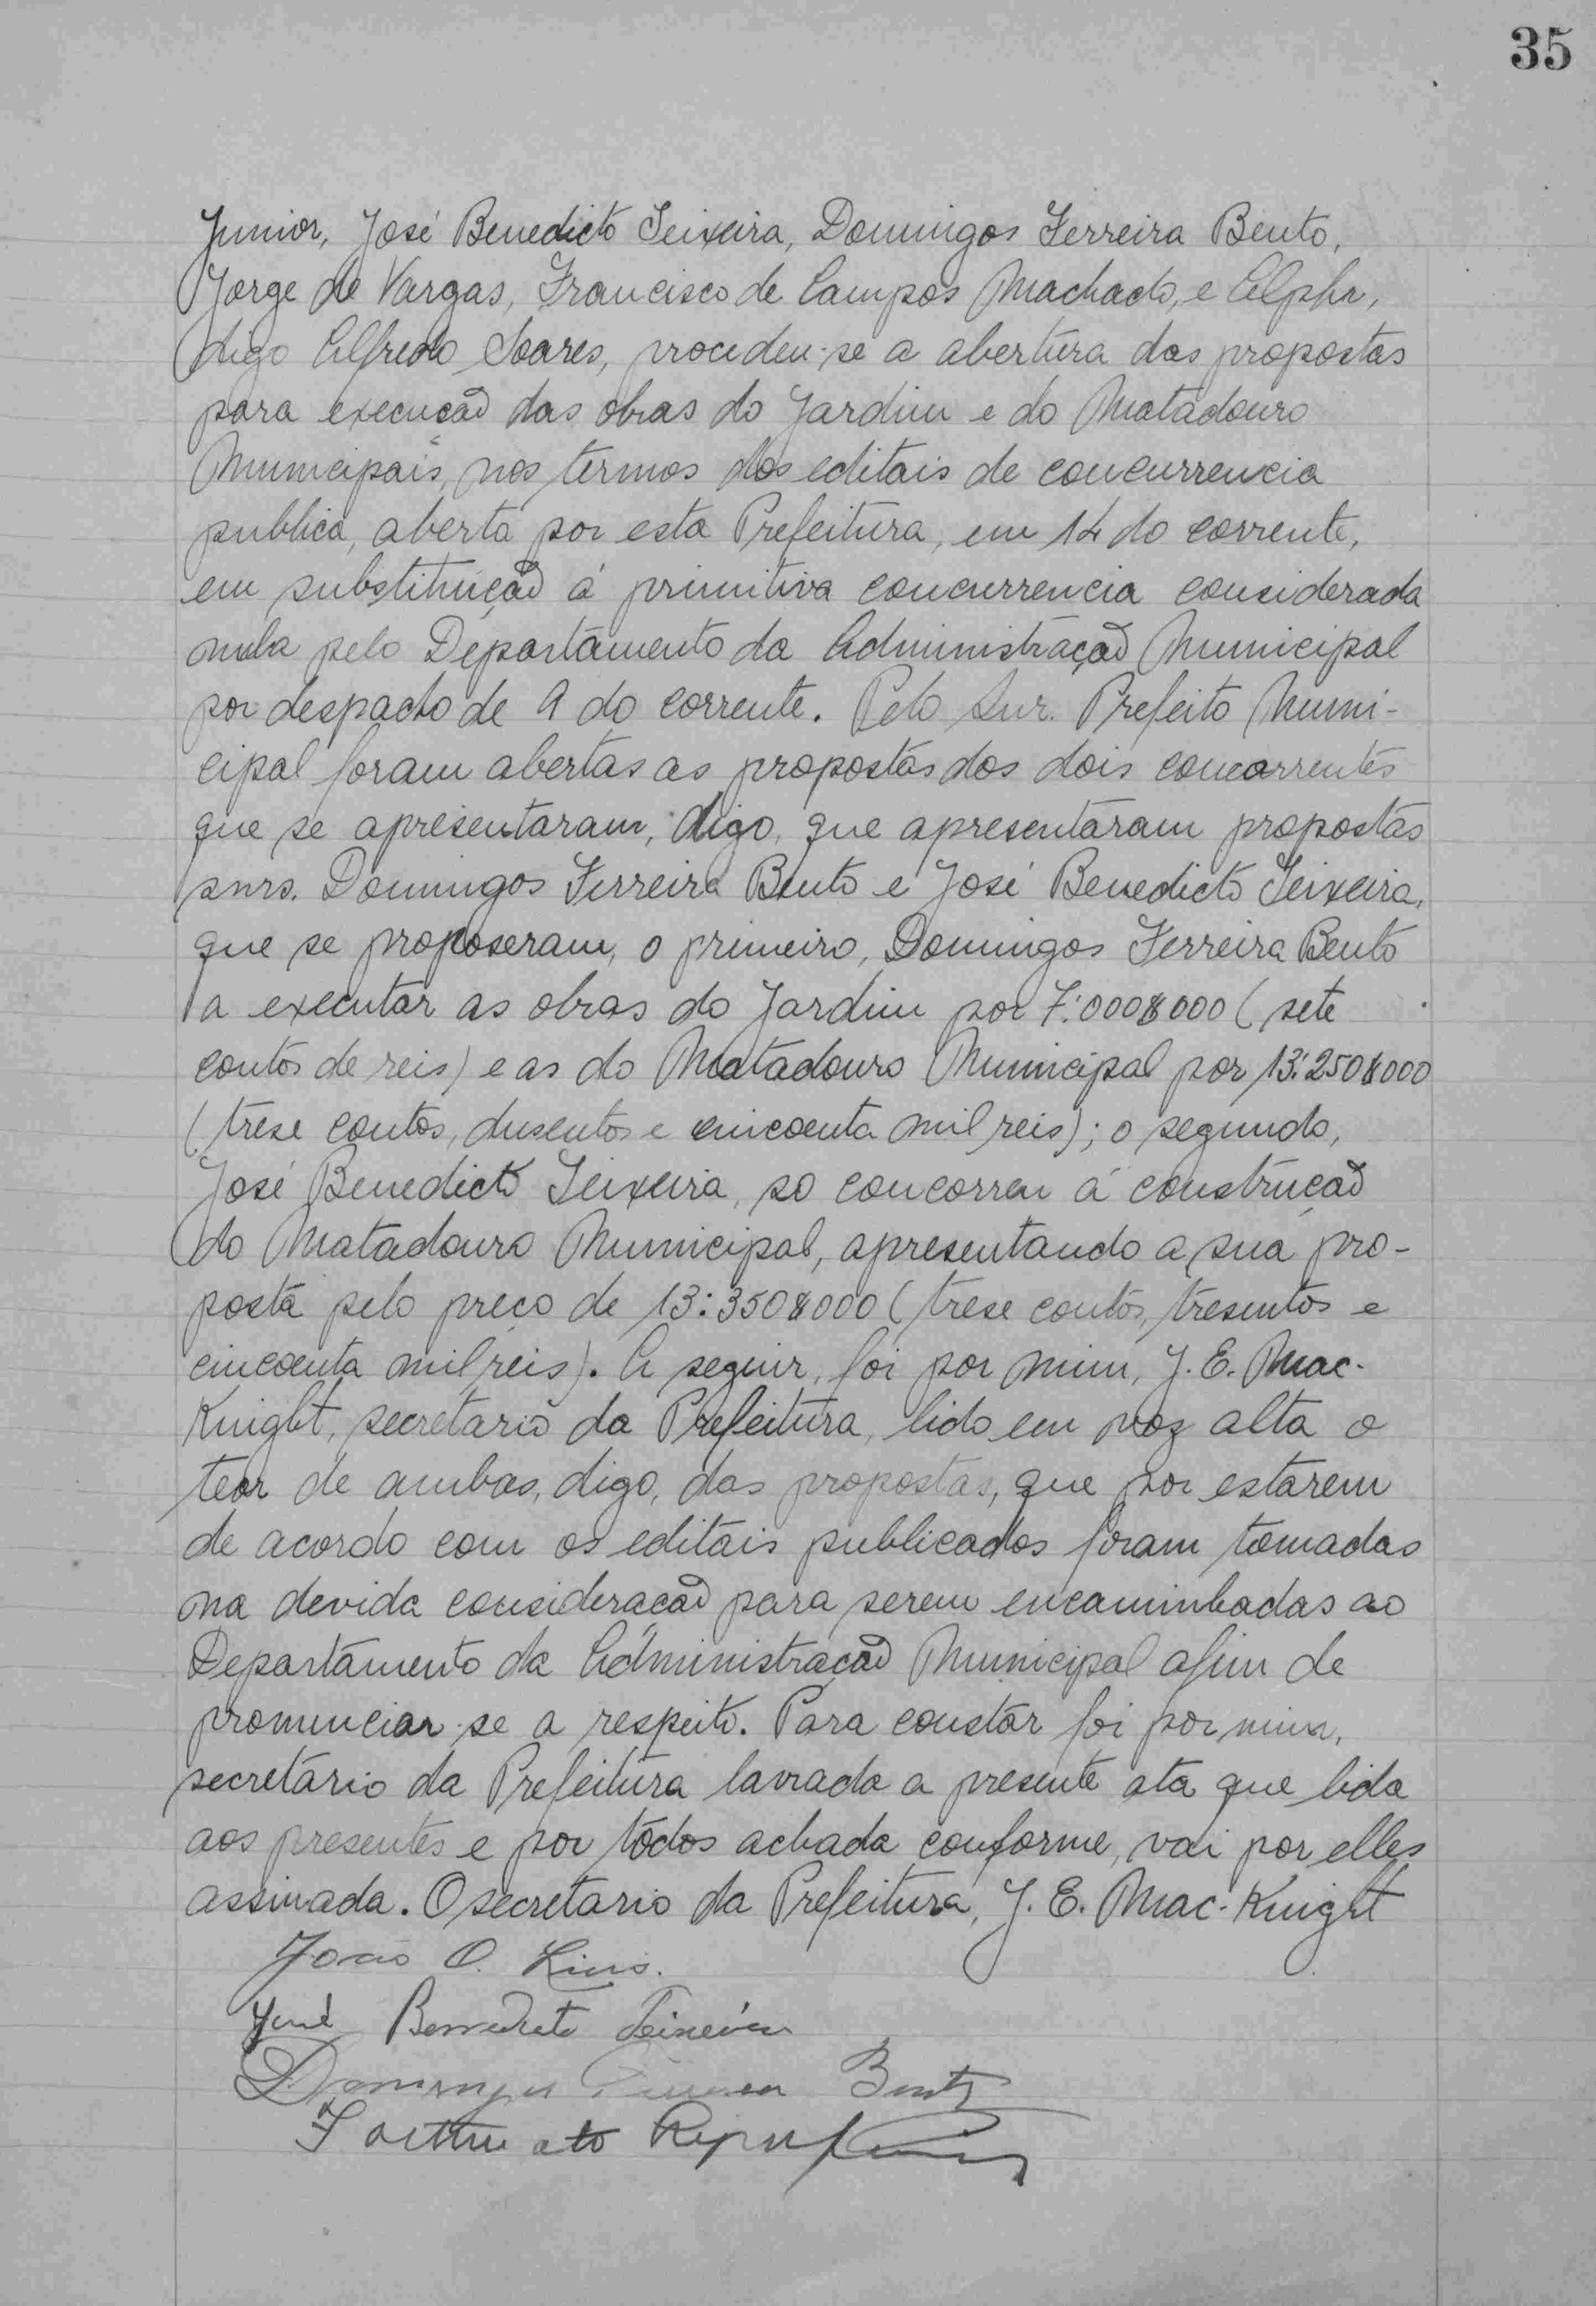 35
Junior, José Benedicto Teixeira, Domingos Ferreira Bento,
Jorge de Vargas, Francisco de Campos Machado, e Alphr,
digo Alfredo Soares, procedeu-se a abertura das propostas
para execução das obras do Jardim e do Matadouro
Municipais, nos termos dos editais de concurrencia
publica, aberta por esta Prefeitura, em 14 do corrente,
em substituição á primitiva concurrencia considerada
nula pelo Departamento da Administração Municipal
por despacho de 9 do corrente. Pelo Snr. Prefeito Muni-
cipal foram abertas as propostas dos dois concorrentes
que se apresentaram, digo, que apresentaram propostas
snrs. Domingos Ferreira Bento e José Benedicto Teixeira,
que se proposeram, o primeiro, Domingos Ferreira Bento
a executar as obras do Jardim por 7:000$000 (sete
contos de reis) e as do Matadouro Municipal por 13:250$000
(trese contos, dusentos e cincoenta mil reis); o segundo,
José Benedicto Teixeira, so concorreu á construção
do Matadouro Municipal, apresentando a sua pro-
posta pelo preço de 13:350$000 (trese contos, tresentos e
cincoenta mil reis). A seguir, foi por mim, J. E. Mac-
Knight, secretario da Prefeitura, lido em voz alta o
teor de ambas, digo, das propostas, que por estarem
de acordo com os editais publicados foram tomadas
na devida consideração para serem encaminhadas ao
Departamento da Administração Municipal afim de
pronunciar-se a respeito. Para constar foi por mim,
secretário da Prefeitura lavrada a presente ata que lida
aos presentes e por todos achada conforme, vai por elles
assinada. O secretario da Prefeitura, J. E. Mac-Knight
João O. Lins.
José Benedicto Teixeira
Domingos Ferreira Bento